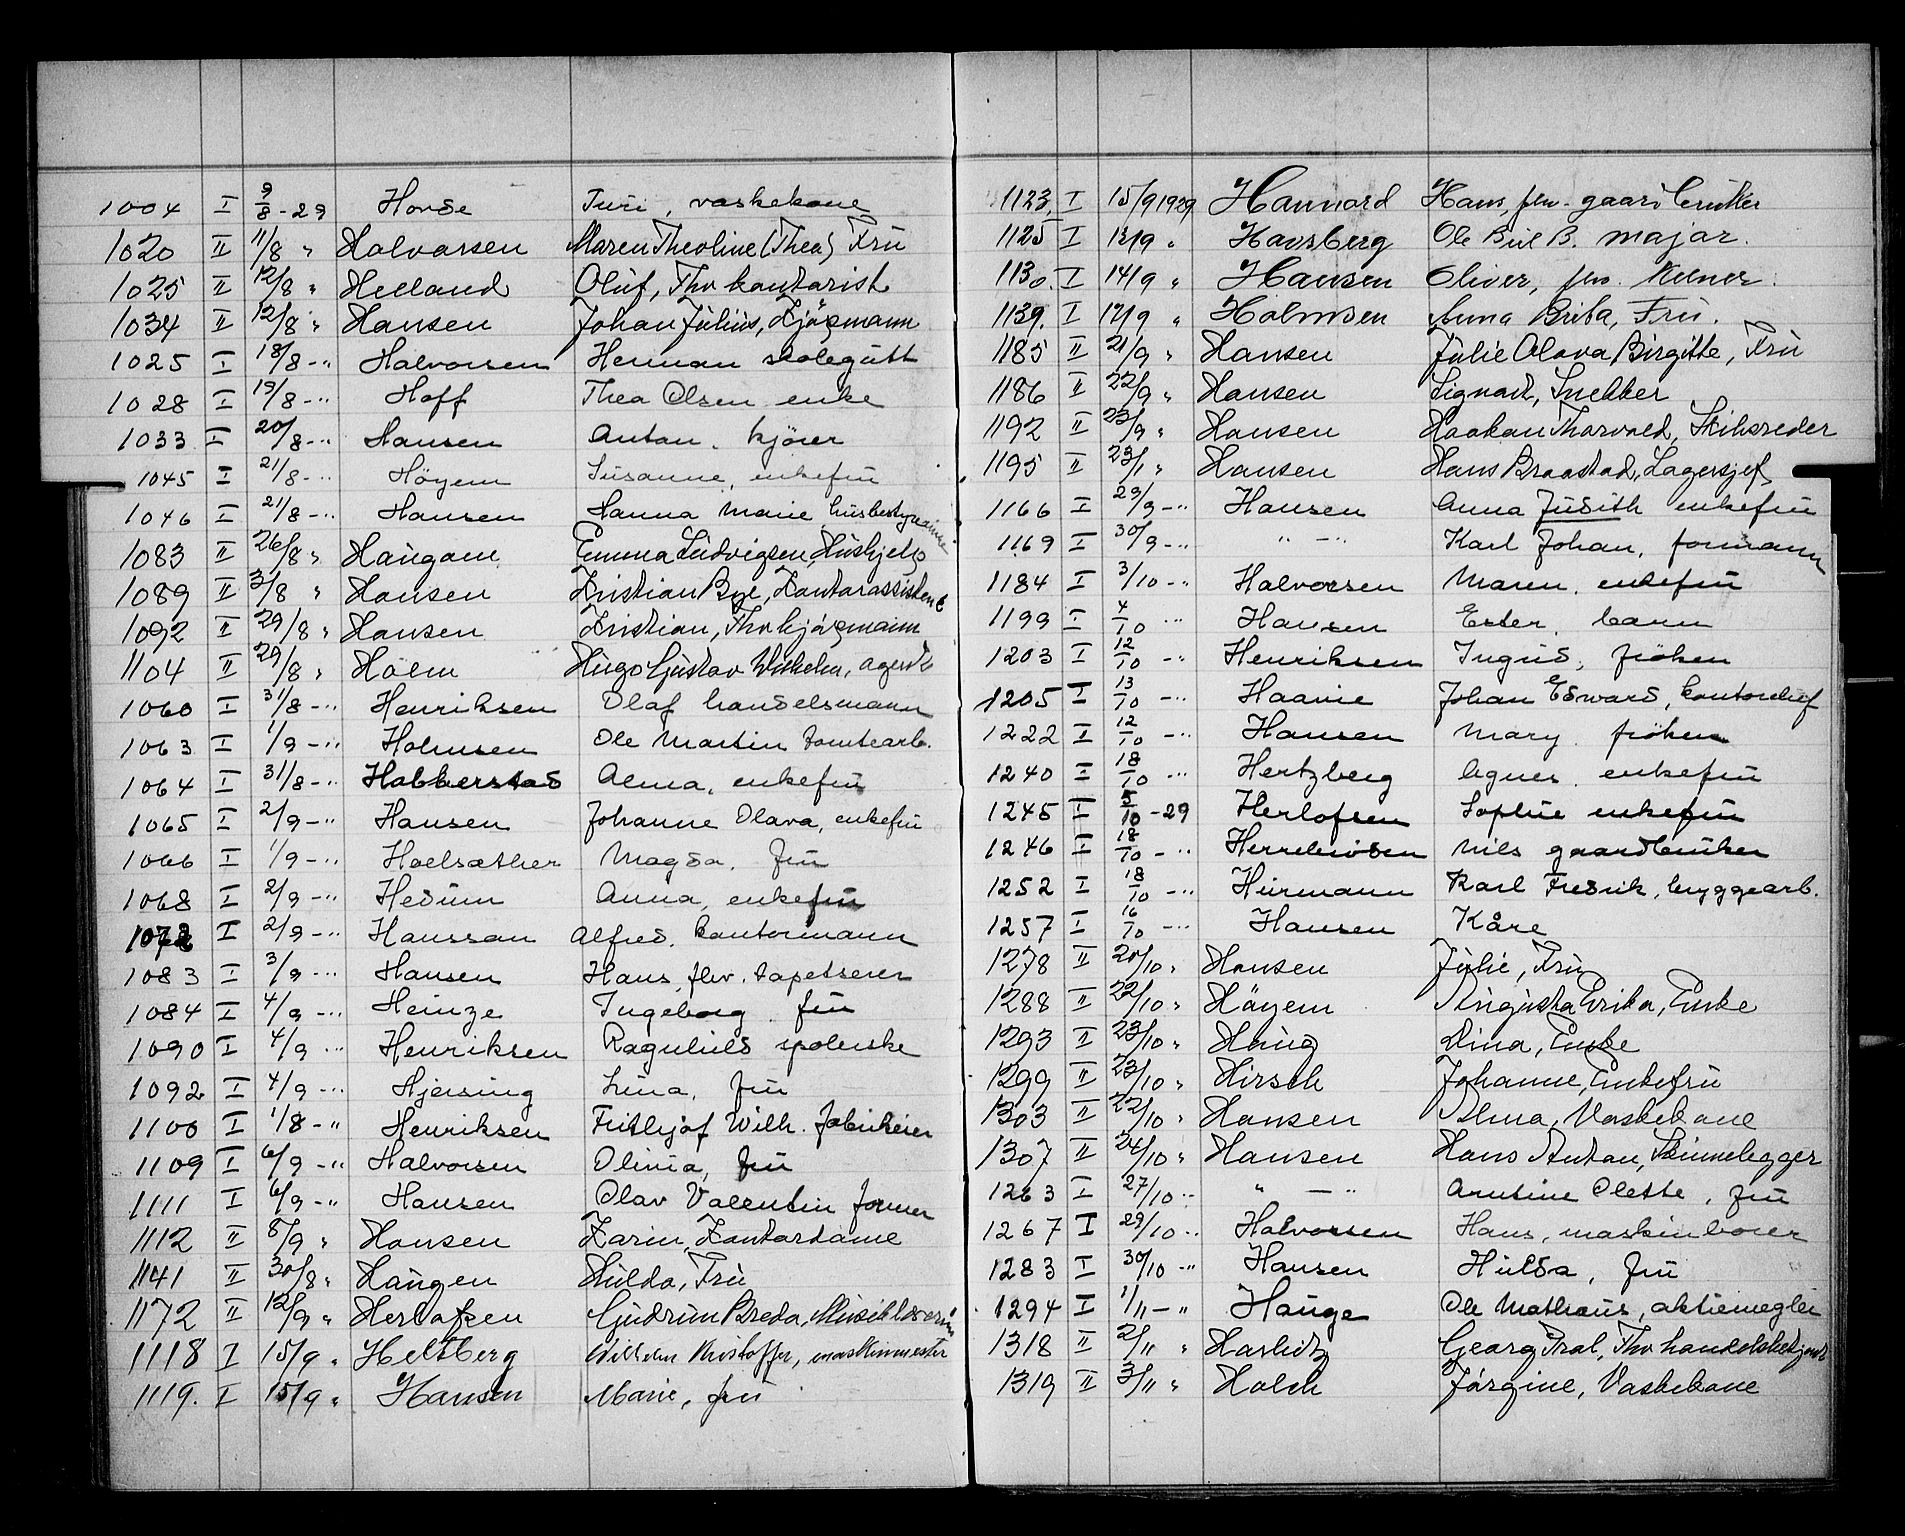 1004 I 9/8 - 29 Hovde Turi, vaskekone
1020 II 11/8 " Halvorsen Maren Theoline (Thea) Fru
1025 II 12/8 " Heeland Oluf, Thv kontorist
1034 II 12/8 " Hansen Johan Julius, Kjöpmann
1025 I 18/8 - " Halvorsen Herman skolegutt
1028 I 19/8 - " Hoff Thea Olsen enke
1033 I 20/8 - " Hansen Anton, kjörer
1045 I 21/8 - " Höyem Susanne, enkefru
1046 I 21/8 - " Hansen Hanna Marie, husbestyrerinne
1083 II 26/8 " Haugom Emma Ludvigsen, Hushjelp
1089 II 3/8 " Hansen Kristian Bye, Kontorassistent
1092 II 29/8 " Hansen Kristian, Thv kjöpmann
1104 II 29/8 " Holm Hugo Gustav Wilhelm, agent
1060 I 31/8 - " Henriksen Olaf handelsmann
1063 I 1/9 - " Holmsen Ole Martin tomtearb.
1064 I 31/8 - " Habberstad Alma, enkefru
1065 I 2/9 - " Hansen Johanne Olava, enkefru
1066 I 1/9 - " Hoelsæther Magda, fru
1068 I 2/9 - " Hedum Anna, enkefru
1072 I 2/9 - " Hanssan Alfred, kontormann
1083 I 3/9 - " Hansen Hans, fhv. tapetserer
1084 I 4/9 - " Heinze Ingeborg, fru
1090 I 4/9 - " Henriksen Ragnhild spolerske
1092 I 4/9 - " Hjersing Lina, fru
1100 I 1/8 - " Henriksen Fridhjof Wilh. fabrikeier
1109 I 6/9 - " Halvorsen Olinia, fru
1111 I 6/9 - " Hansen Olav Valentin former
1112 II 8/9 " Hansen Karin, Kontordame
1141 II 30/8 " Haugen Hulda, Fru
1172 II 12/9 " Herlofsen Gudrun Breda, Musiklærerin
1118 I 15/9 " Heltberg Wilhelm Kristoffer, maskinmester
1119. I 15/9 " Hansen Marie, fru
1123. I 15/9 1929 Hannord Hans, fhv. gaardbruker
1125 I 13/9 " Hansberg Ole Bul B. major.
1130. I 14/9 " Hansen Oliver, fhv. Kelner.
1139. I 17/9 " Holmsen Anna Brita, Fru.
1185 II 21/9 " Hansen Julie Olava Birgitte, Fru
1186 II 22/9 " Hansen Sigvart, Snekker
1192 II 23/9 " Hansen Haakon Thorvald, Skibsreder
1195 II 23/1 " Hansen Hans Braastad, Lagersjef
1166 I 29/9 - " Hansen Anna Judith enkefru
1169 I 30/9 - " " - " Karl Johan, formann
1184 I 3/10 - " Halvorsen Maren, enkefru
1199 I 4/10 " Hansen Ester, barn
1203 I 12/10 - " Henriksen Ingrid, fröken
1205 I 13/10 - " Haavie Johan Edward, kontorchef
1222 I 12/10 - " Hansen Mary, fröken
1240 I 18/10 - " Hertzberg Agnes, enkefru
1245 I 5/10 - 29 Herlofsen Sophie enkefru
1246 I 18/10 - " Nils gaardbruker
1252 I 18/10 - " Heirmann Karl Fredrik, bryggearb.
1257 I 16/10 - " Hansen Kåre
1278 II 20/10 " Hansen Julie, Fru
1288 II 22/10 " Höyem Augusta Erika, Enke
1293 I 23/10 " Haug Dina, Enke
1299 II 23/10 " Hirsch Johanne, Enkefru
1303 II 22/10 " Hansen Alma, Vaskekone
1307 II 24/10 " Hansen Hans Anton, Steinhlegger
1263 I 27/10 " " - " Arntine Olette, fru
1267 I 29/10 " Halvorsen Hans, maskinborer
1283 I 30/10 - " Hansen Hulda, fru
1294 I 1/11 - " Hauge Ole Mathæus, aktiemegler
1318 II 2/11 " Harbitz Georg Pral, Thv handelsbetjent
1319 II 3/11 " Holck Jörgine, Vaskekone